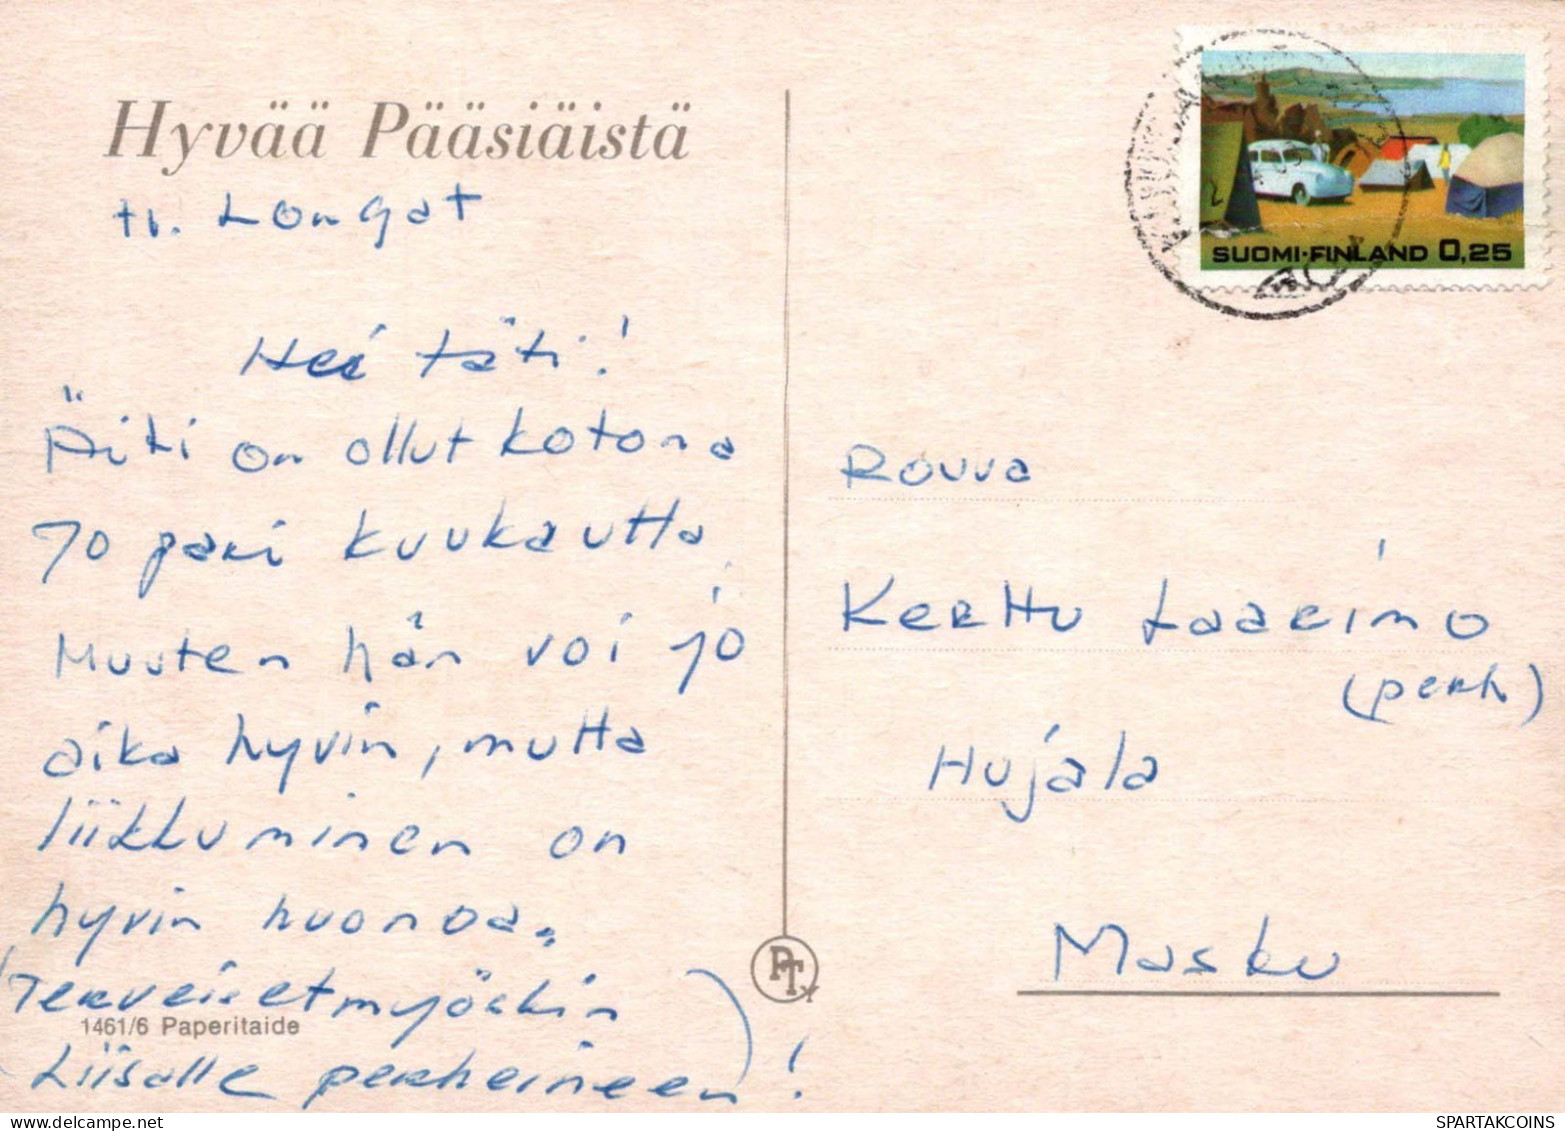 Hyvää Pääsiäistä
tv. Longat
Hei täti!
Äiti on ollut kotona
jo pari kuukautta.
Muuten hän voi jo
aika hyvin, mutta
liikkuminen on
hyvin huonoa.
(Terveiset myöskin
Liisalle perheineen)!
1461/6 Paperitaide
PTy
SUOMI-FINLAND 0,25
Rouva
Kerttu Laarimo
(perh)
Hujala
Masku
SPARTAKCOINS